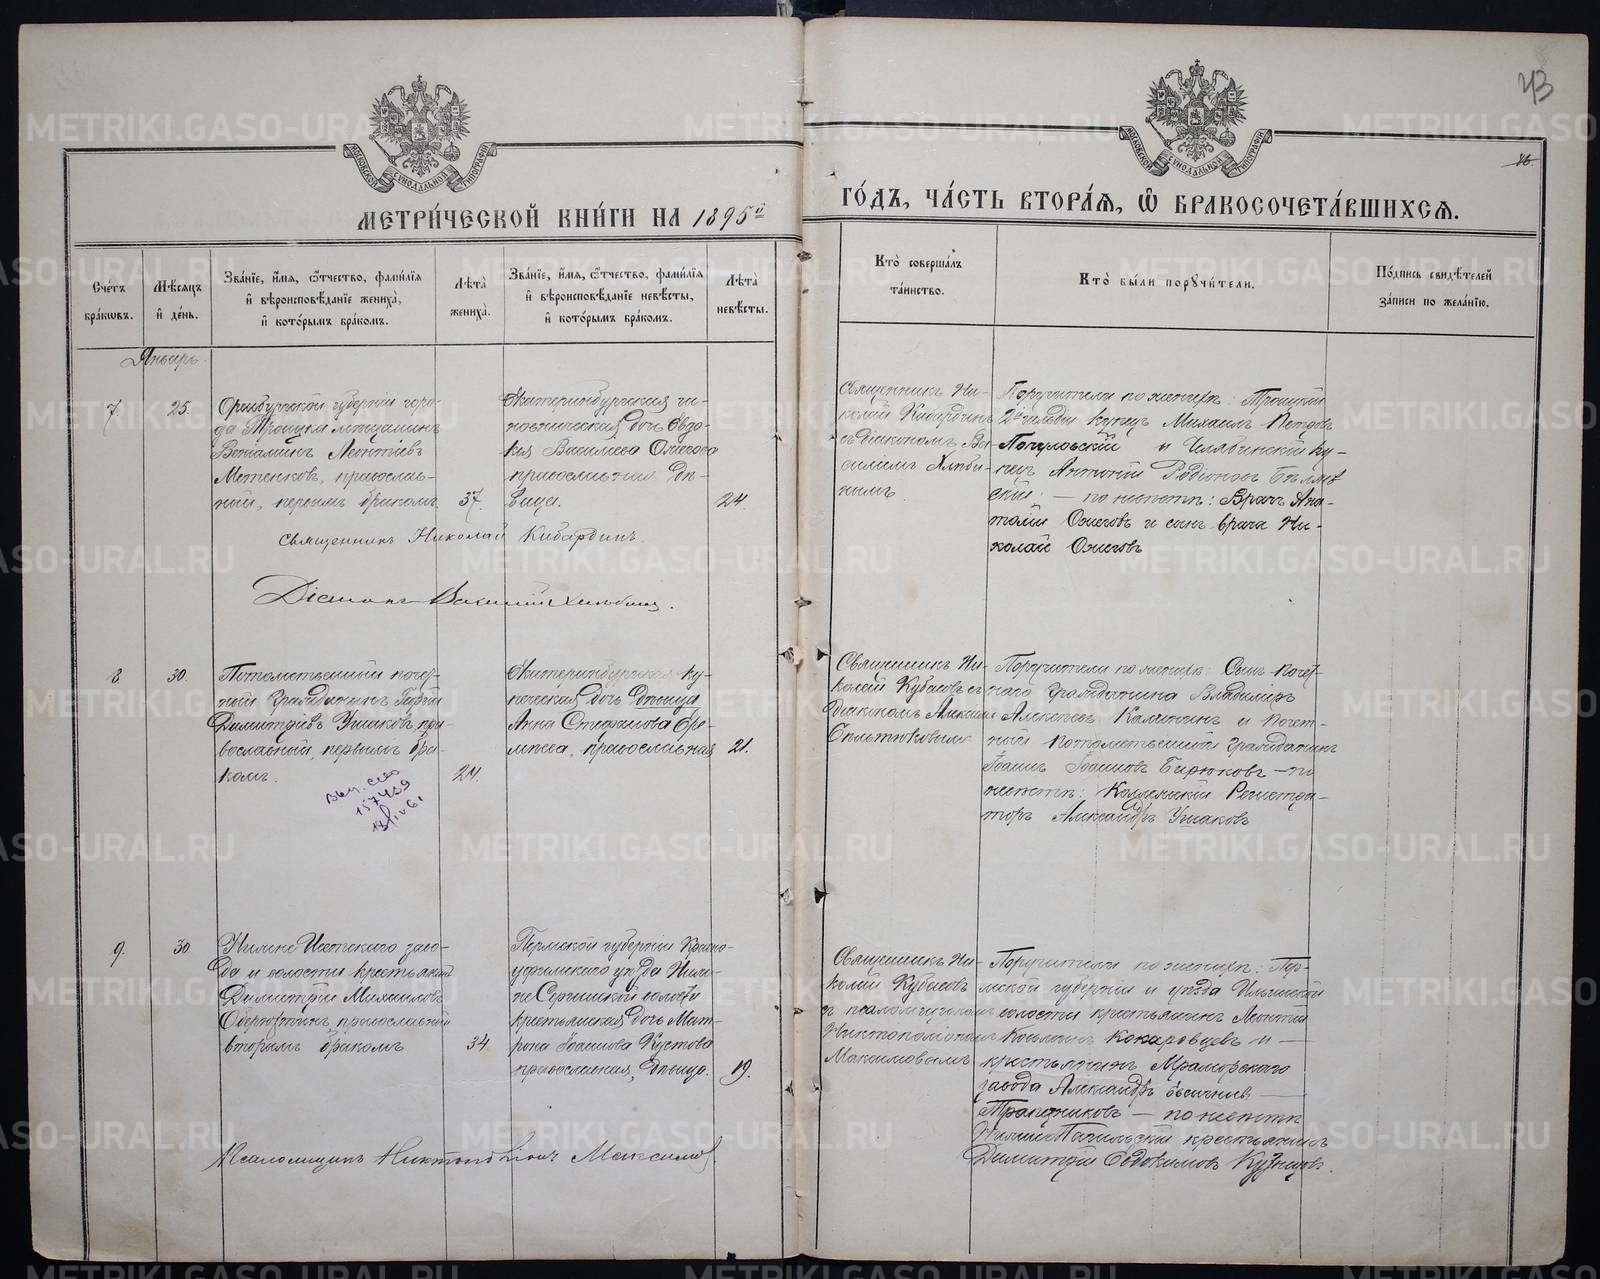 43
46.
МОСКОВСКОЙ СѴНОДАЛЬНОЙ ТИПОГРАФІИ
МОСКОВСКОЙ СѴНОДАЛЬНОЙ ТИПОГРАФІИ
МЕТРИ́ЧЕСКОЙ КНИ́ГИ НА 1895й
ГО́ДЪ, ЧА́СТЬ ВТОРА́Я, Ѽ БРАКОСОЧЕТА́ВШИХСЯ.
Сче́тъ бра́кѡвъ.
Мѣ́сяцъ и҆ де́нь.
Зва́нїе, и҆́мя, ѻ҆́тчество, фами́лїя
и҆ вѣроисповѣ́данїе жениха̀,
и҆ кото́рымъ бра́комъ.
Лѣ́та жениха̀.
Зва́нїе, и҆́мя, ѻ҆́тчество, фами́лїя
и҆ вѣроисповѣ́данїе невѣ́сты,
и҆ кото́рымъ бра́комъ.
Лѣ́та невѣ́сты.
Кто̀ соверша́лъ
та́инство.
Кто̀ бы́ли порꙋчи́тели.
По́дпись свидѣ́телей
за́писи по жела́нїю.
Январь.
7.
25.
Оренбургской губерніи горо-
да Троицка мѣщанинъ
Веніаминъ Леонтіевъ
Метенковъ, православ-
ный, первымъ бракомъ
37.
Екатеринбургская чи-
новническая дочь Евдо-
кія Васильева Ожегова
православная дѣ-
вица.
24.
Священникъ Ни-
колай Кибардинъ
съ діакономъ Ва-
силіемъ Хлѣби-
нымъ.
Поручители по женихѣ: Троицкій
2й гильдіи купецъ Михаилъ Петровъ
и Челябинскій ку-
пецъ Антоній Родіоновъ
— по невѣстѣ: Врачъ Ана-
толій Ожеговъ и сынъ врача Ни-
колай Ожеговъ
Священникъ Николай Кибардинъ
Діаконъ Василій Хлѣбинъ.
8
30.
Потомственный почет-
ный гражданинъ
Димитріевъ Ушаковъ, пра-
вославный, первымъ бра-
комъ.
24.
Екатеринбургская ку-
печеская дочь дѣвица
Анна Стефанова Ере-
мѣева, православная
21.
Священникъ Ни-
колай Кубасовъ съ
діакономъ Алексіемъ
Поручители по женихѣ: Сынъ почет-
наго гражданина Владиміръ
Алексѣевъ Калининъ и почет-
ный потомственный гражданинъ
Іоаннъ Іоанновъ Бирюковъ — по
невѣстѣ: Коллежскій Регистра-
торъ Александръ Ушаковъ
157459
9.
30
Нижне Исетскаго заво-
да и волости крестьянинъ
Димитрій Михаиловъ
православный
вторымъ бракомъ
34
Пермской губерніи Красно-
уфимскаго уѣзда Ниж-
не Сергинской волости
крестьянская дочь Мат-
рона Іоаннова Кустова
православная, дѣвица.
19.
Священникъ Ни-
колай Кубасовъ
съ псаломщикомъ
Никтополіономъ
Максимовымъ
Поручители по женихѣ: Пер-
мской губерніи и уѣзда Ильинской
волости крестьянинъ Леонтій
Кокаровцевъ и —
крестьянинъ Мраморскаго
завода Александръ
Трапезниковъ — по невѣстѣ
Нижне Тагильскій крестьянинъ
Димитрій Евдокимовъ Кузнецовъ.
Псаломщикъ Никтополіонъ Максимовъ
METRIKI.GASO-URAL.RU